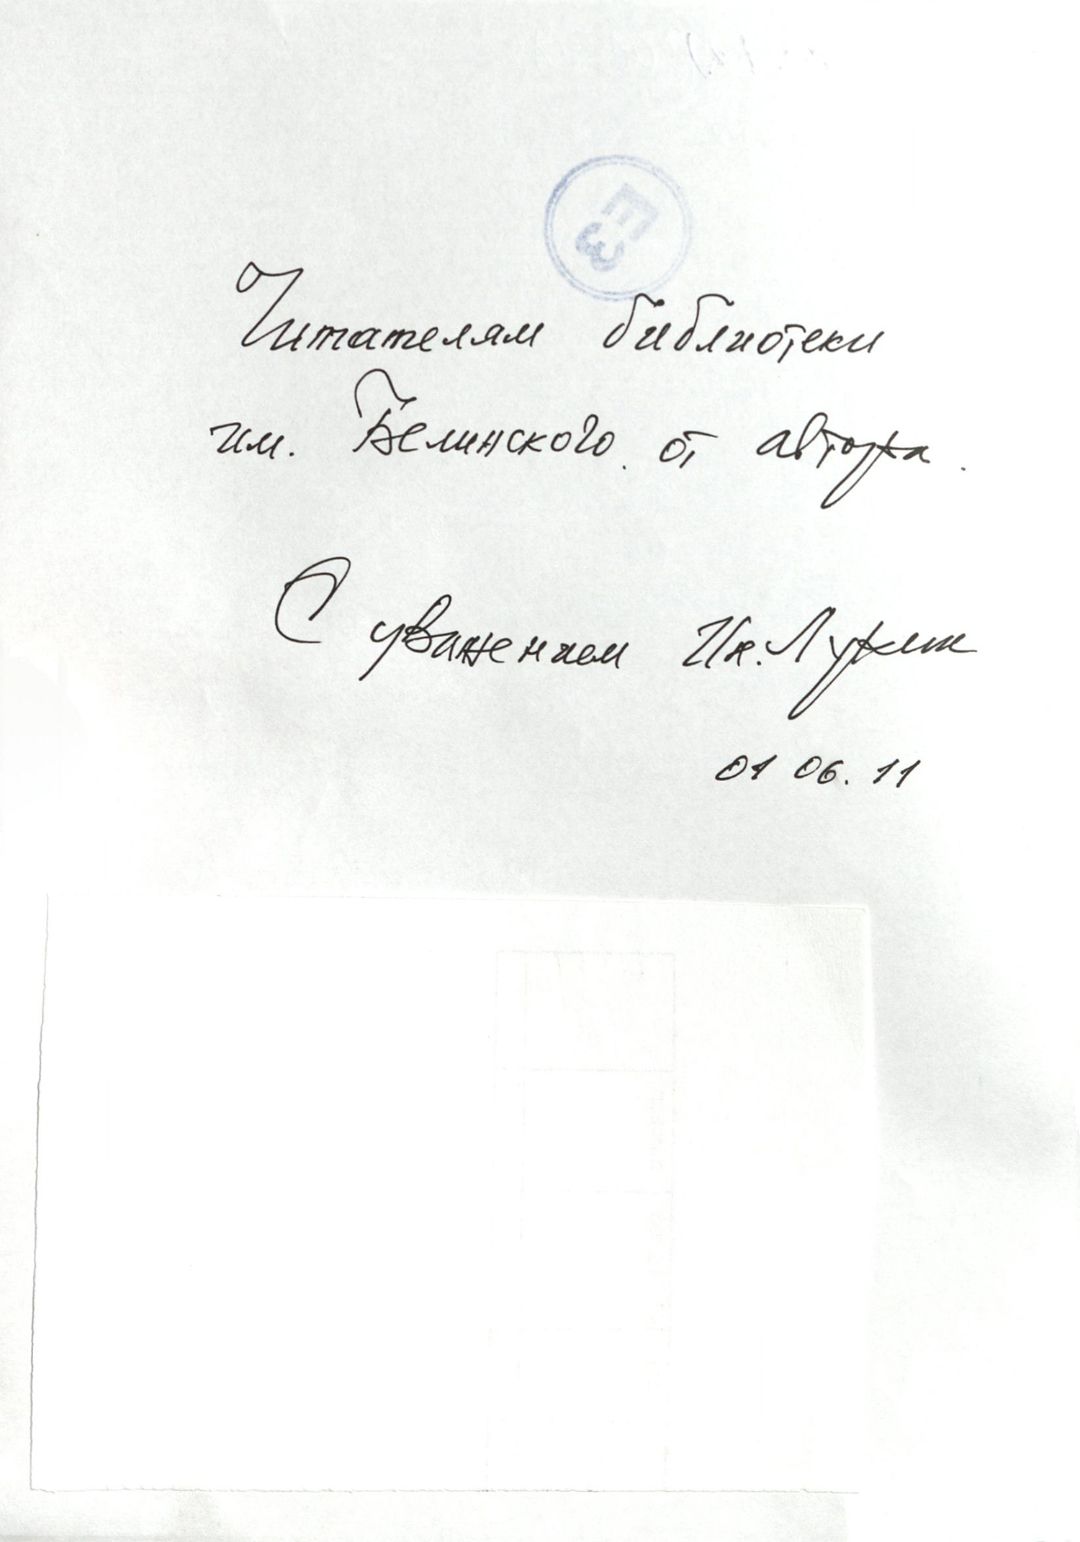 ЕЗ
Читателям библиотеки
им. Белинского. от автора.
С уважением Ин. Лукин
01 06. 11